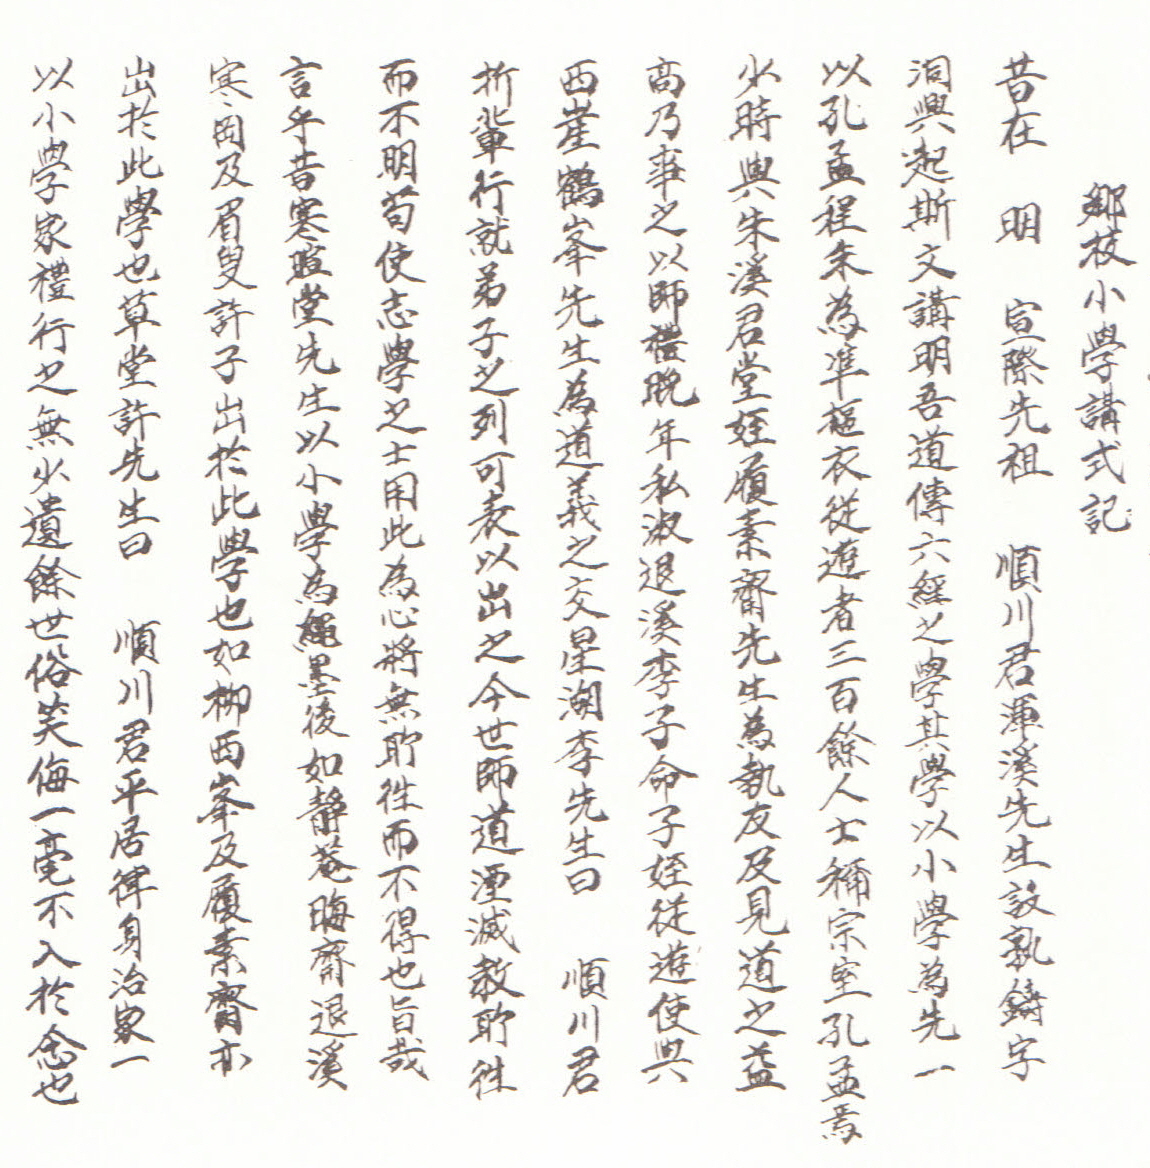 鄕校小學講式記
昔在 明 宣際先祖 順川君渾溪先生設孰鑄字
洞興起斯文講明吾道傳六經之學其學以小學為先一
以孔孟程朱為準樞衣從遊者三百餘人士稱宗室孔孟焉
少時與朱溪君堂姪履素齋先生為執友及見道之益
高乃事之以師禮晩年私淑退溪李子命子姪從遊使與
西崖鶴峯先生為道義之交星湖李先生曰 順川君
折輩行就弟子之列可表以出之今世師道湮滅敎耶徃
而不明苟使志學之士用此為心將無耶徃而不得也旨哉
言乎昔寒暄堂先生以小學為繩墨後如靜菴晦齋退溪
寒岡及眉叟許子出於此學也如柳西峯及履素齋亦
出於此學也草堂許先生曰 順川君平居律身治家一
以小學家禮行之無少遺餘世俗笑侮一毫不入於念也